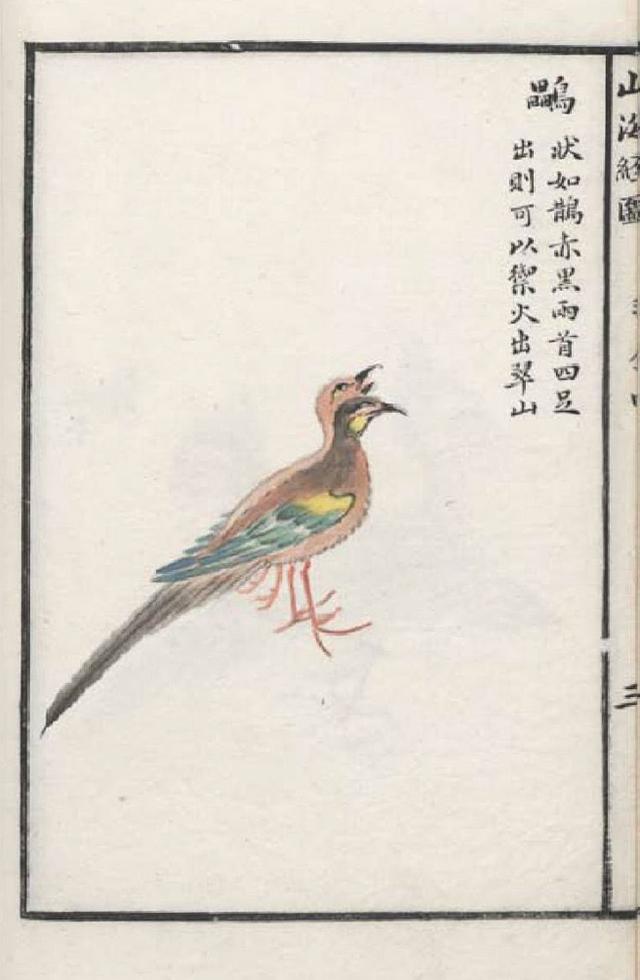 山海經圖
三
鸓
狀如鵲赤黑兩首四足
出則可以禦火出翠山